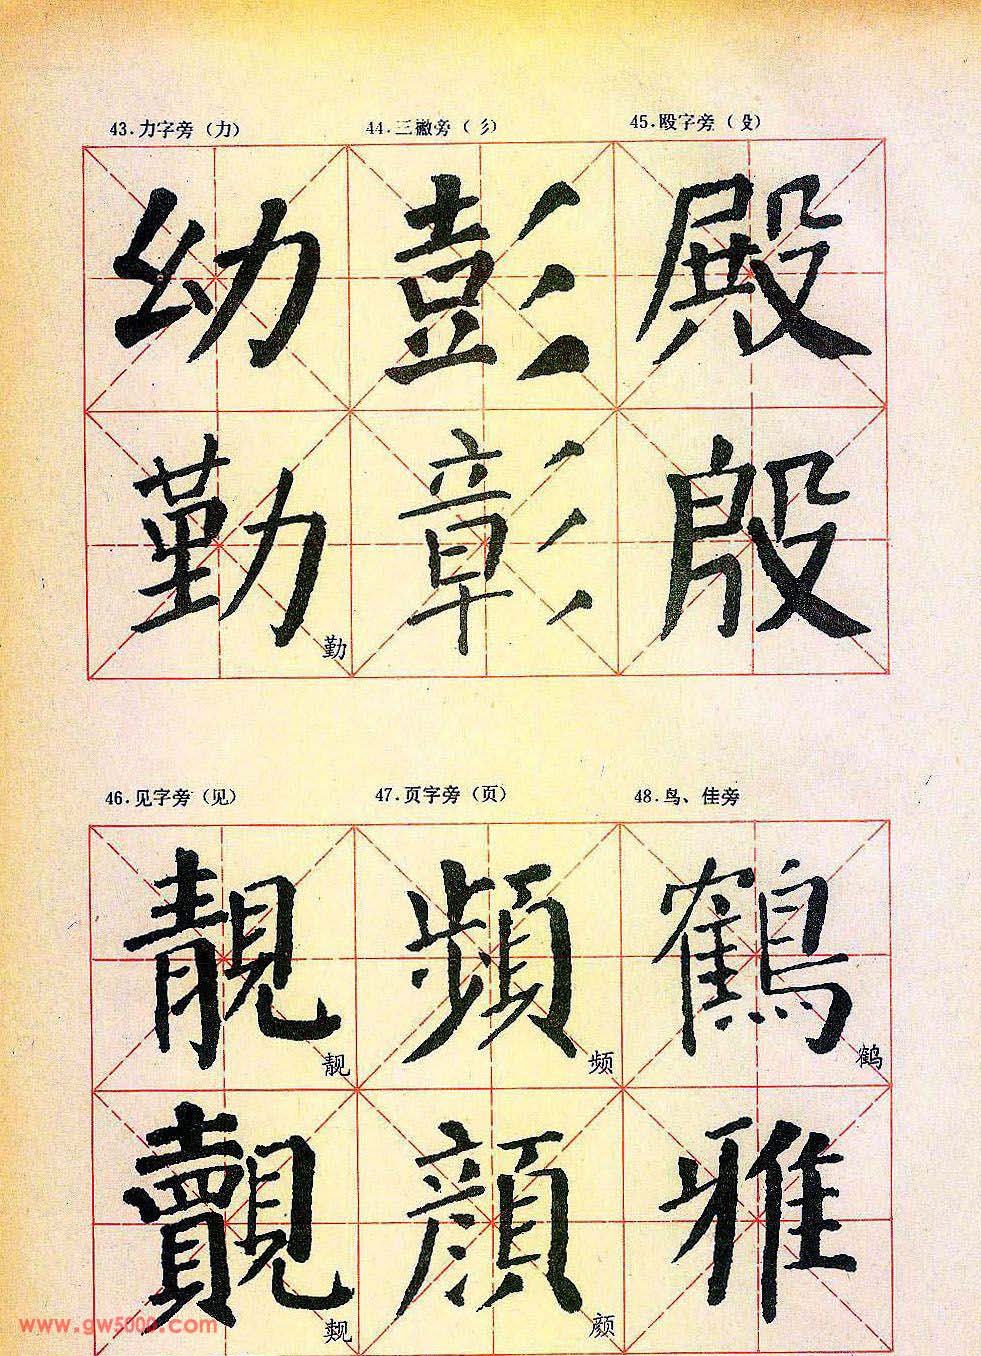 43.力字旁（力） 44.三撇旁（彡） 45.殴字旁（殳）
幼 彭 殿
勤 彰 殷
勤
46.见字旁（见） 47.页字旁（页） 48.鸟、佳旁
靓 頻 鶴
靓 频 鹤
覿 顔 雅
觌 颜
www.gw5000.com